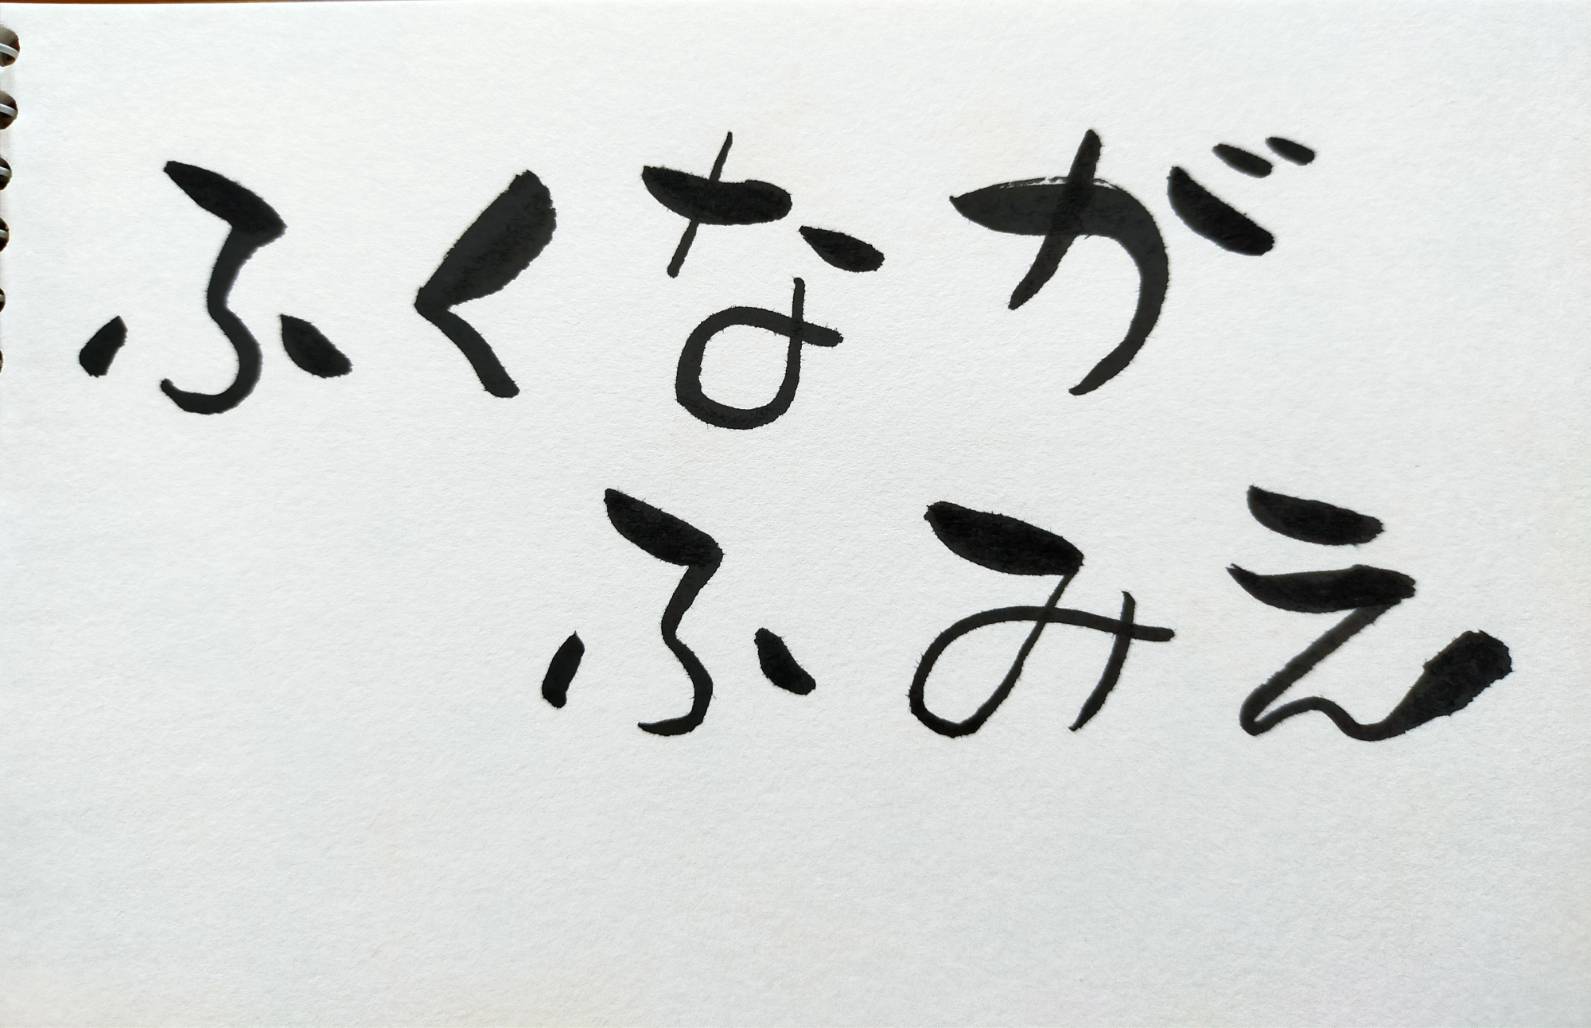 ふくなが
ふみえ